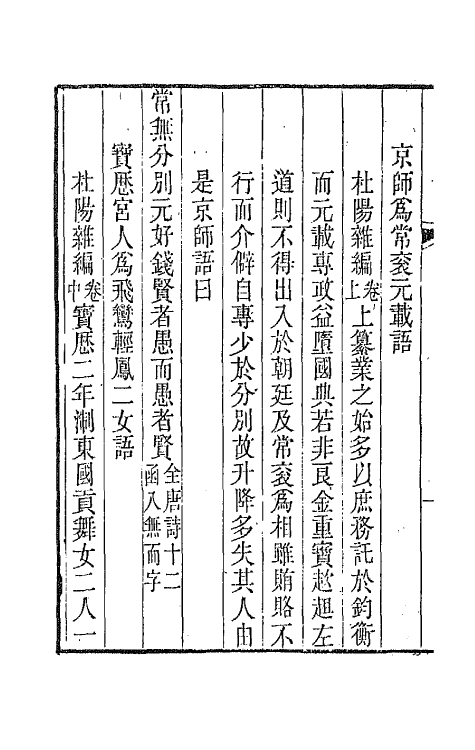 京師爲常衮元載語
杜陽雜編卷上上纂業之始多以庶務託於鈞衡
而元載專政益墮國典若非良金重寶趑趄左
道則不得出入於朝廷及常衮爲相雖賄賂不
行而介僻自專少於分別故升降多失其人由
是京師語曰
常無分別元好錢賢者愚而愚者賢全唐詩十二函入無而字
寶厯宮人爲飛鸞輕鳳二女語
杜陽雜編卷中寶厯二年淛東國貢舞女二人一